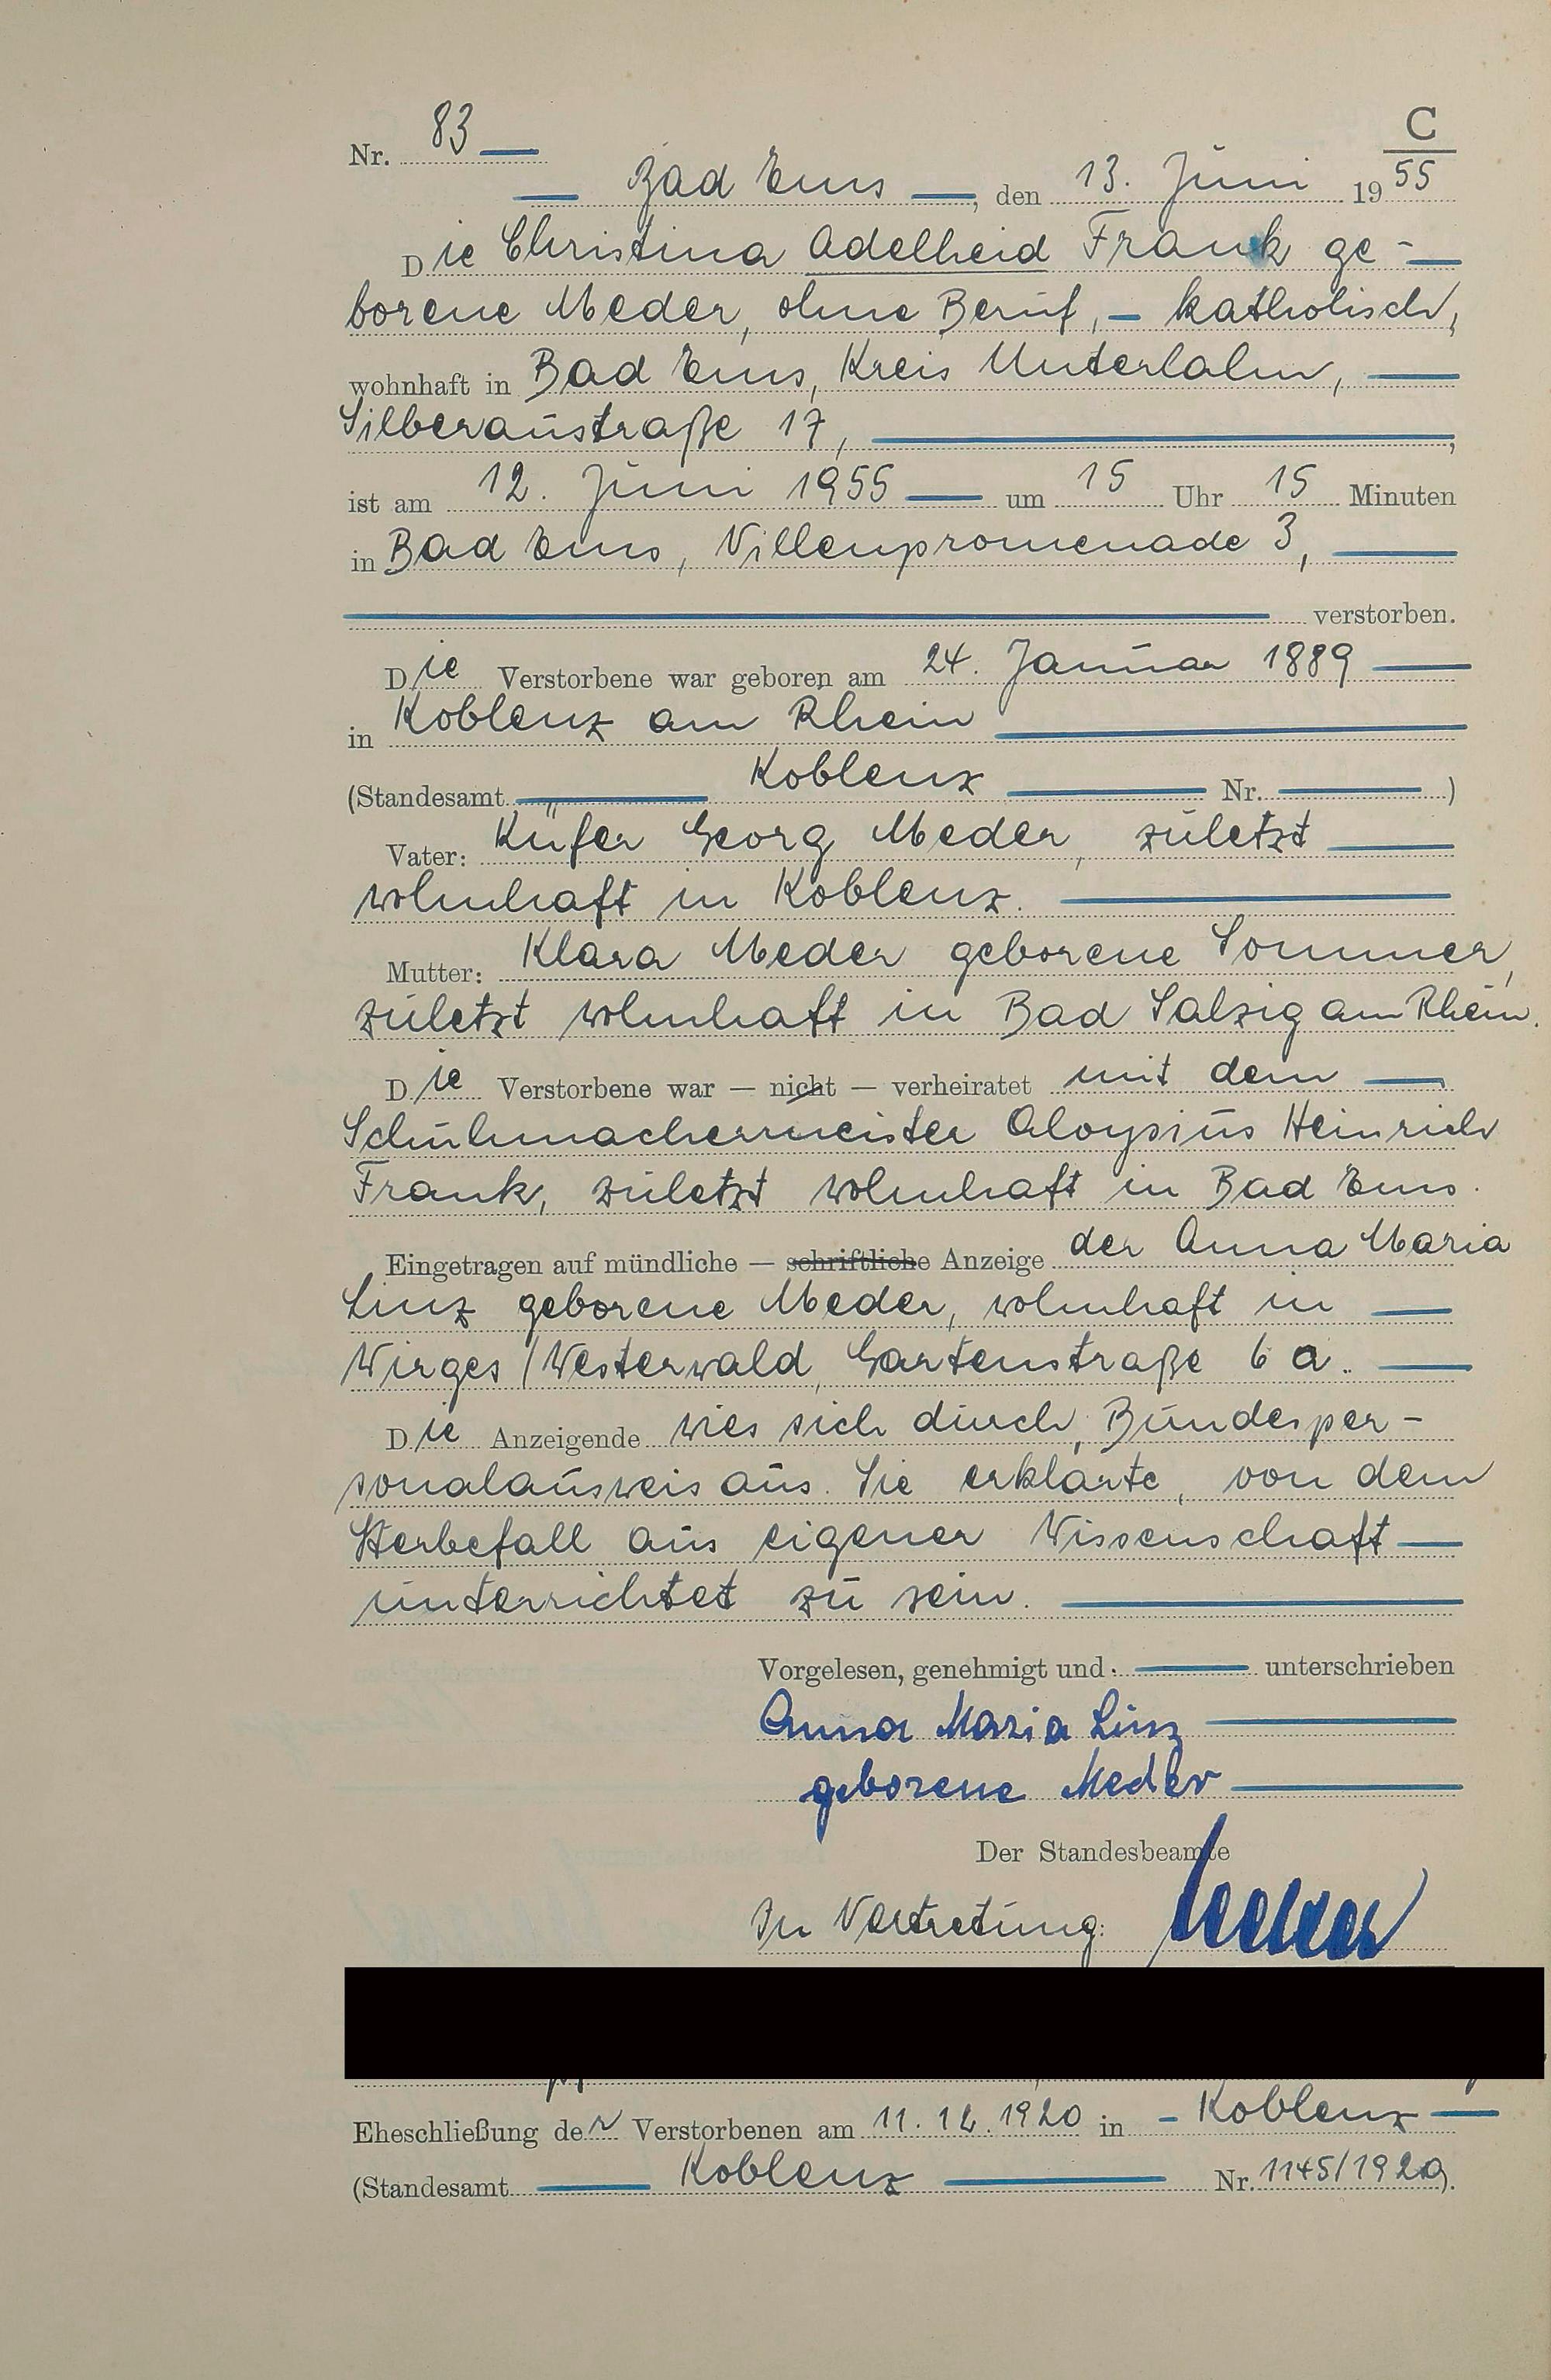 C
Nr. 83
Bad Ems, den 13. Juni 1955
Die Christina Adelheid Frank ge-
borene Meder, ohne Beruf, - katholisch,
wohnhaft in Bad Ems, Kreis Unterlahn,
Silberaustraße 17,
ist am 12. Juni 1955 um 15 Uhr 15 Minuten
in Bad Ems, Villenpromenade 3,
verstorben.
Die Verstorbene war geboren am 24. Januar 1889
in Koblenz am Rhein
(Standesamt Koblenz Nr. )
Vater: Küfer Georg Meder, zuletzt
wohnhaft in Koblenz.
Mutter: Klara Meder geborene Sommer,
zuletzt wohnhaft in Bad Salzig am Rhein.
Die Verstorbene war — nicht — verheiratet mit dem
Schuhmachermeister Aloysius Heinrich
Frank, zuletzt wohnhaft in Bad Ems.
Eingetragen auf mündliche — schriftliche Anzeige der Anna Maria
Linz geborene Meder, wohnhaft in
Wirges/Westerwald, Gartenstraße 6a.
Die Anzeigende wies sich durch Bundesper-
sonalausweis aus. Sie erklärte, von dem
Sterbefall aus eigener Wissenschaft
unterrichtet zu sein.
Vorgelesen, genehmigt und unterschrieben
Anna Maria Linz
geborene Meder
Der Standesbeamte
In Vertretung:
Eheschließung der Verstorbenen am 11.12.1920 in - Koblenz
(Standesamt Koblenz Nr. 1145/1920).